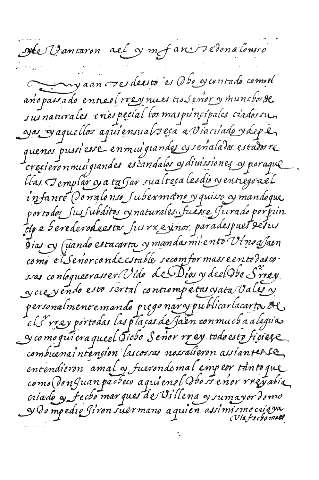 y le Vantaron ael ynfante don alonso
ya antes desto es Dho y contado como el
año passado entre el rrey nuestro señor y muncho de
sus naturales en especial los mas principales criados su
yos y aquellos a quien su alteça a Via criado y des pu
quenos pusiese en muy grandes y señalados estados re
crecieron muy grandes escandalos y diuissiones y para que
llas templar y atajar su alteça les dio y entrego el
infante Don alonso su hermano y quiso y mando que
por todos sus subditos y naturales fuesse Jurado por prin
cipe heredero destos sus rreynos para despues de sus
dias y quando esta carta y mandamiento Vino a Jaen
como el Señor condestable se conformasse en todas co
sas con lo que era ser Vido de Dios y del Dho Sr rrey
y creyendo esto ser tal con trompetas y atabales y
personalmente mando pregonar y publicar la carta de
el sr rrey por todas las plaças de Jaen con mucha alegria
y como quiera que el Dicho Señor rrey todo esto hiciese
con buena intencion las cosas no salieron assi antes se
entendieron a mal y fueron de mal en peor tanto que
como Don Juan pacheco a quien el Dho señor rrey abia
criado y fecho marques de Villena y su mayordomo
y Don pedro Giron su ermano a quien assi mismo crio y a
Via fecho maestre